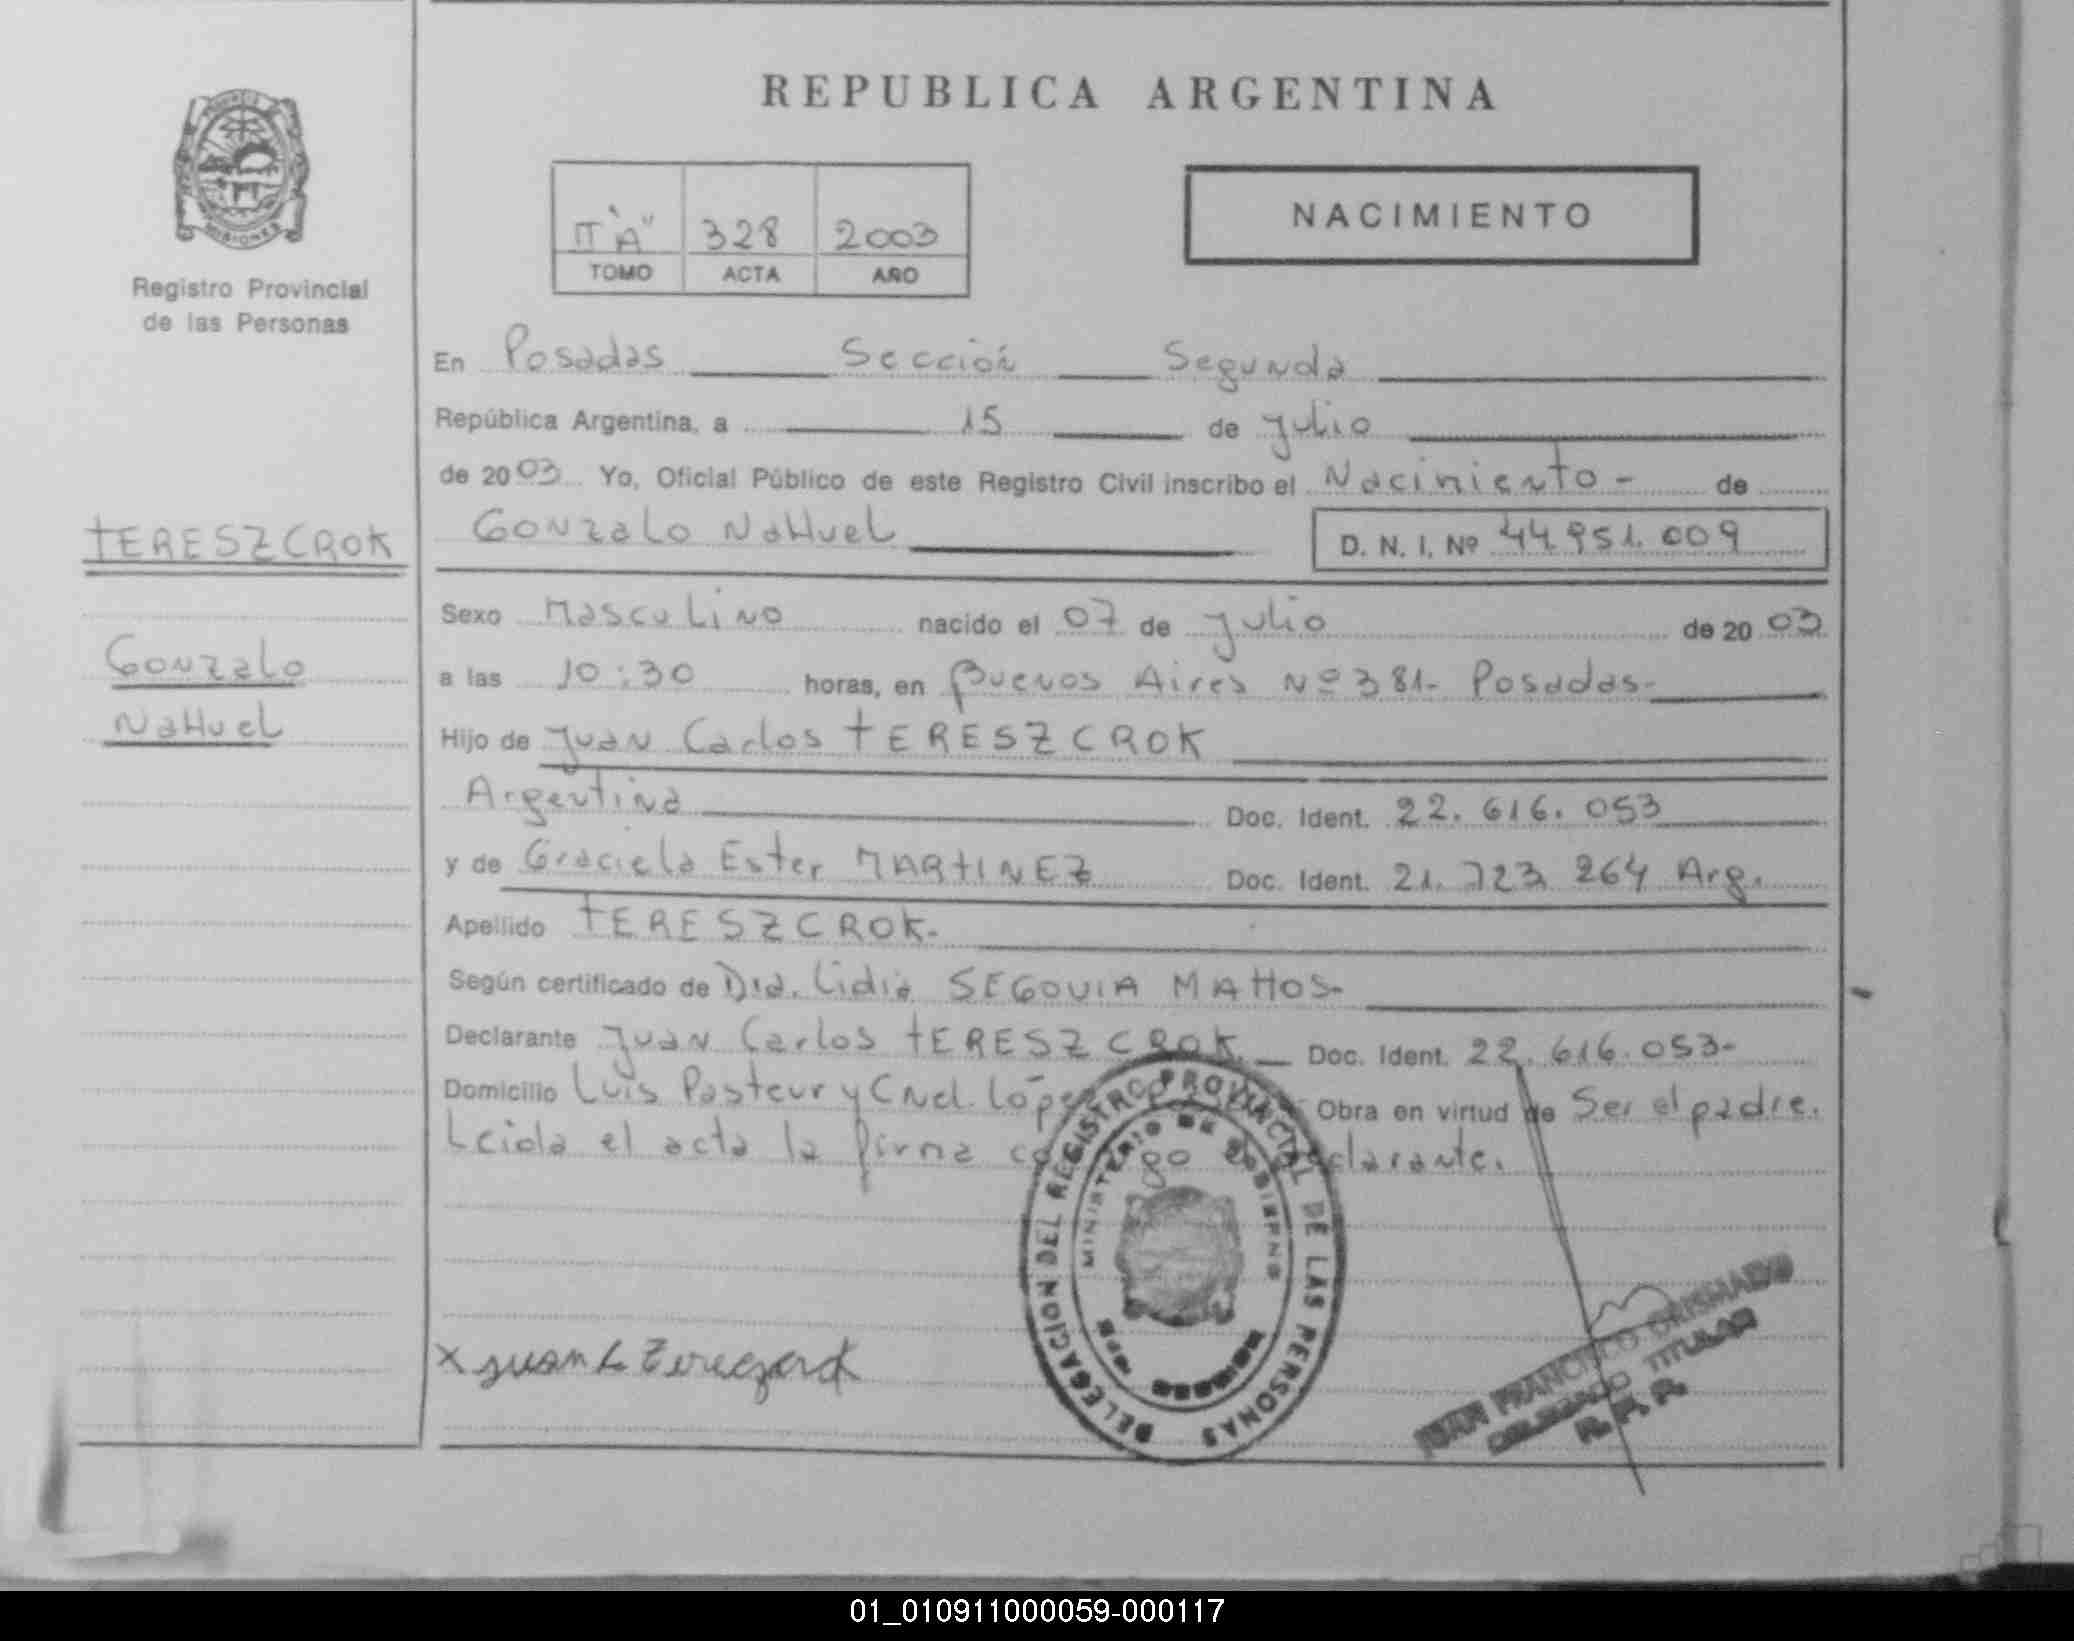 REPUBLICA ARGENTINA
MISIONES
Registro Provincial
de las Personas
II "A" 328 2003
TOMO ACTA AÑO
NACIMIENTO
En Posadas Sección Segunda
República Argentina, a 15 de Julio
de 2003 Yo, Oficial Público de este Registro Civil inscribo el Nacimiento - de
Gonzalo NaHuel D. N. I. Nº 44.951.009
TERESZCROK
Gonzalo
NaHuel
Sexo Masculino nacido el 07 de Julio de 2003
a las 10:30 horas, en Buenos Aires Nº 381- Posadas-
Hijo de Juan Carlos TERESZCROK
Argentina Doc. Ident. 22.616.053
y de Graciela Ester MARTINEZ Doc. Ident. 21.723.264 Arg.
Apellido TERESZCROK-
Según certificado de Dra. Lidia SEGOVIA MATTOS-
Declarante Juan Carlos TERESZCROK Doc. Ident. 22.616.053-
Domicilio Luis Pasteur y Cnel. López Obra en virtud de Ser el padre.
Leida el acta la firma conmigo el declarante.
DELEGACION DEL REGISTRO PROVINCIAL DE LAS PERSONAS
MINISTERIO DE GOBIERNO
MISIONES
x Juan
JUAN FRANCISCO
DELEGADO TITULAR
R. P. P.
01_010911000059-000117